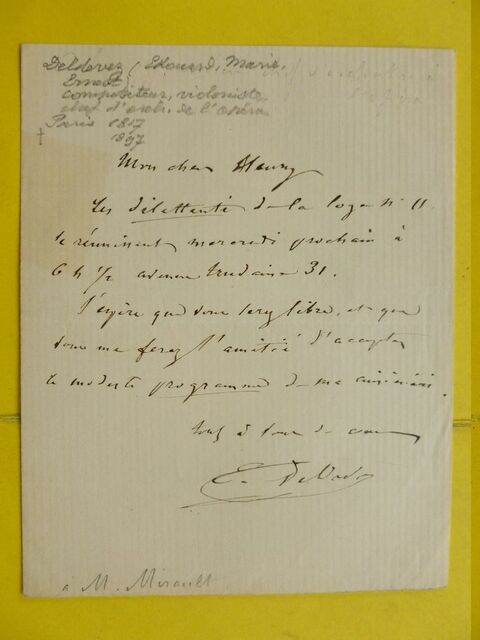 Deldévez (Edouard, Marie,
Ernest)
compositeur, violoniste,
chef d'orch. de l'opéra
Paris 1817
† 1897
Mon cher
Les dilettanti de la loge n° 11
se réunissent mercredi prochain à
6 h ½ avenue Trudaine 31.
J'espère que vous serez libre, et que
vous me ferez l'amitié d'accepter
le modeste programme de ma cuisinière.
tout à vous de cœur
E. Deldevez
à M. Mirault